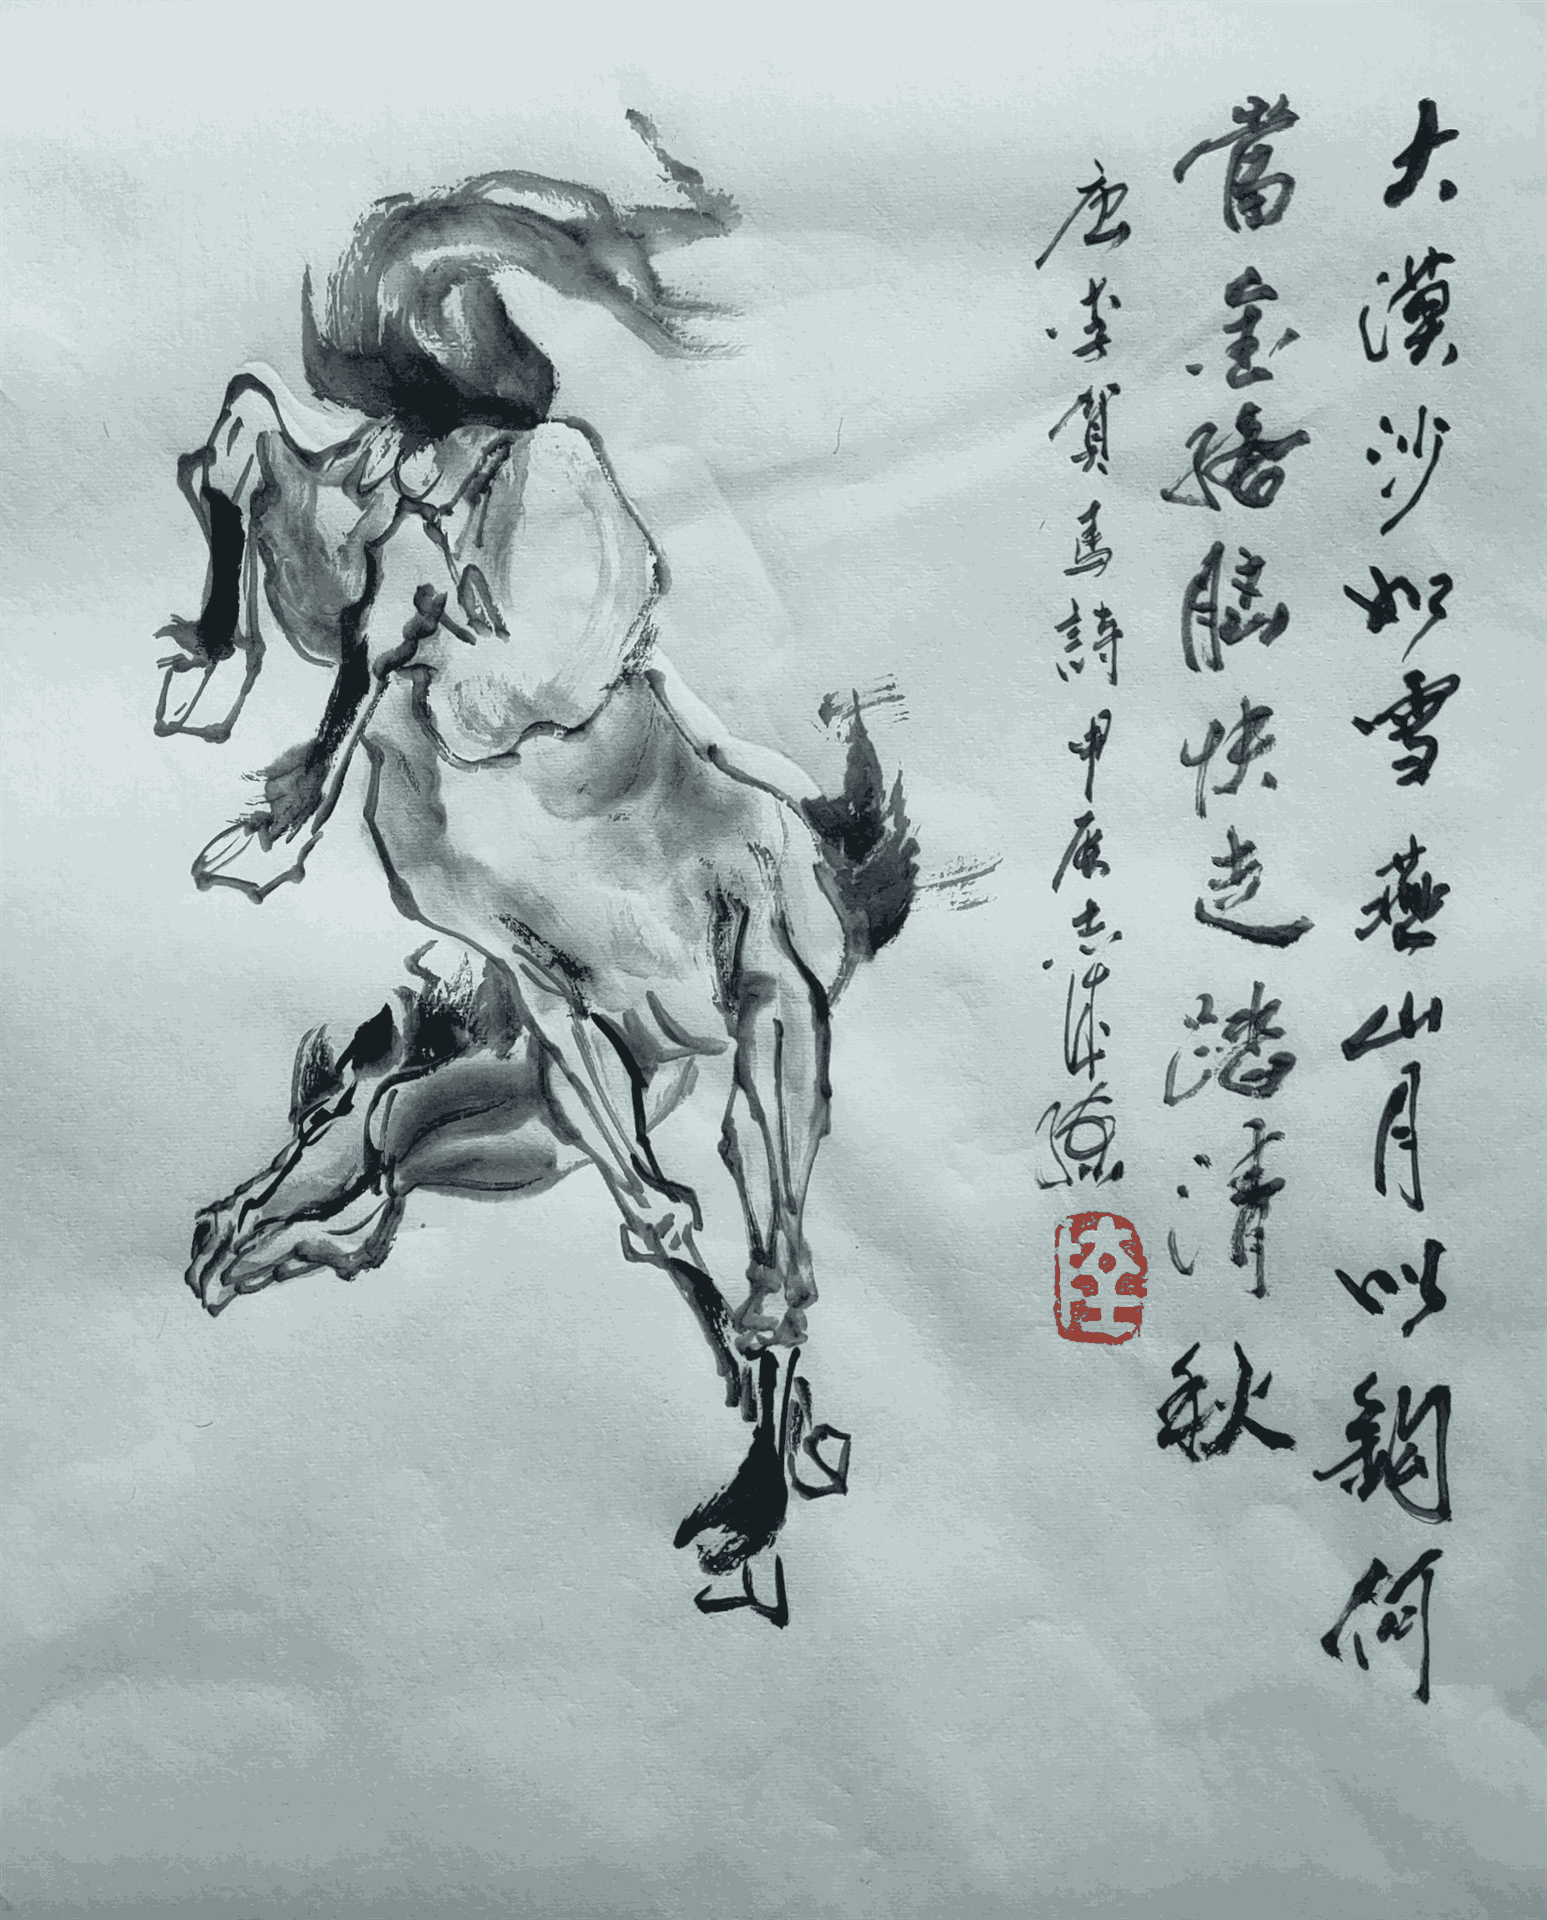 大漠沙如雪燕山月似鈎何
當金絡腦快走踏清秋
唐李賀馬詩甲辰志